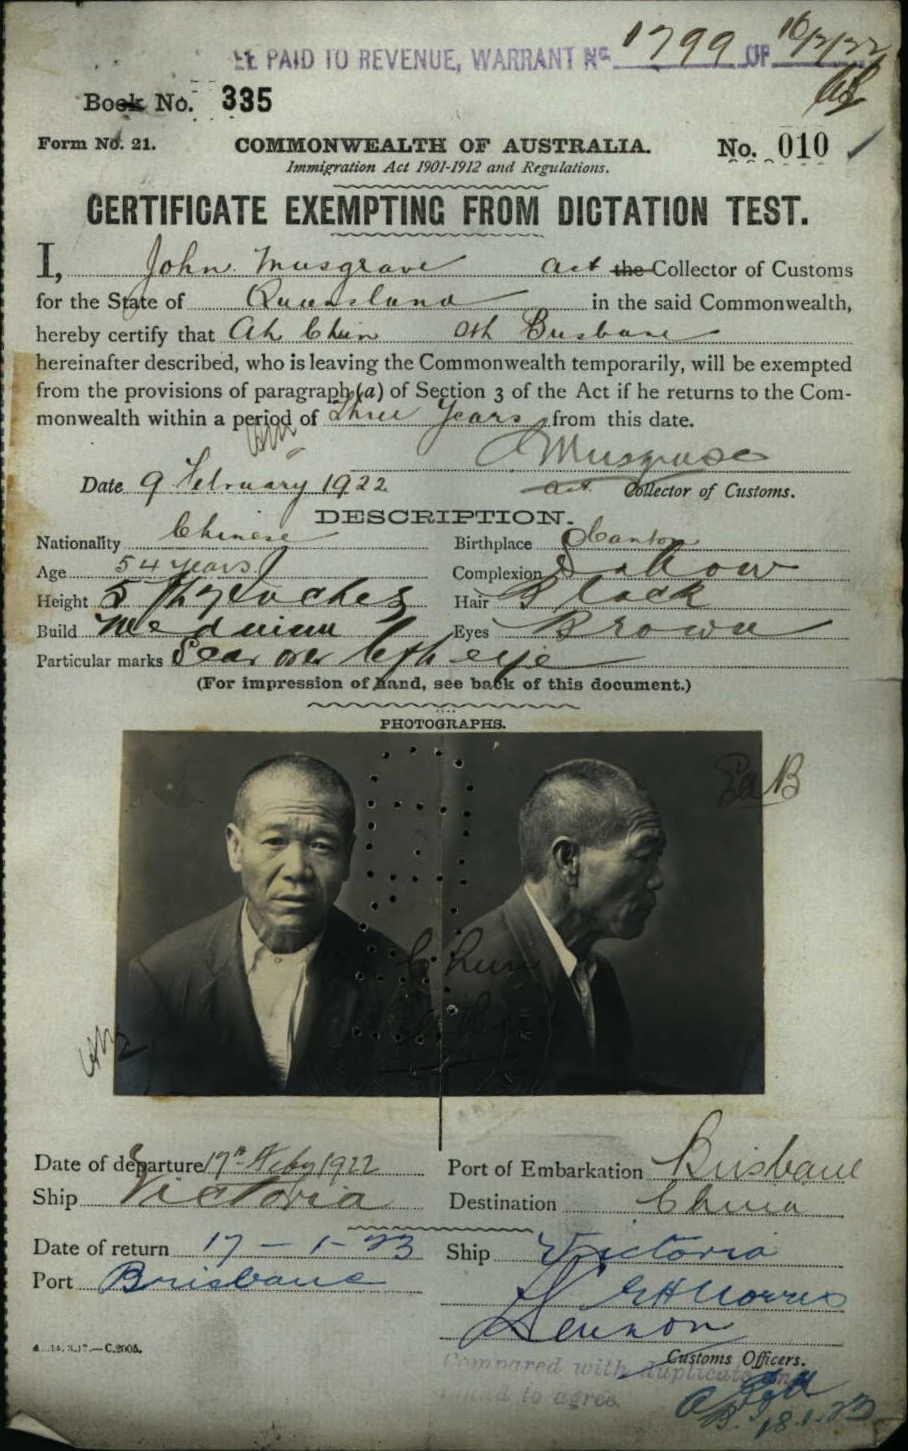 PAID TO REVENUE, WARRANT No. 1799 OF
Book No. 335
Form No. 21. COMMONWEALTH OF AUSTRALIA. No. 010
Immigration Act 1901-1912 and Regulations.
CERTIFICATE EXEMPTING FROM DICTATION TEST.
I, John Musgrave act the Collector of Customs
for the State of Queensland in the said Commonwealth,
hereby certify that Ah Chin Brisbane
hereinafter described, who is leaving the Commonwealth temporarily, will be exempted
from the provisions of paragraph (a) of Section 3 of the Act if he returns to the Com-
monwealth within a period of three years from this date.
J Musgrave
Date 9 February 1922 act Collector of Customs.
DESCRIPTION.
Nationality Chinese Birthplace Canton
Age 54 years Complexion Sallow
Height 5 inches Hair Black
Build Medium Eyes Brown
Particular marks Scar over left eye
(For impression of hand, see back of this document.)
PHOTOGRAPHS.
Date of departure 17th Feby 1922 Port of Embarkation Brisbane
Ship Victoria Destination China
Date of return 17-1-23 Ship Victoria
Port Brisbane
Customs Officers.
Compared with duplicate and
found to agree.
18.1.23